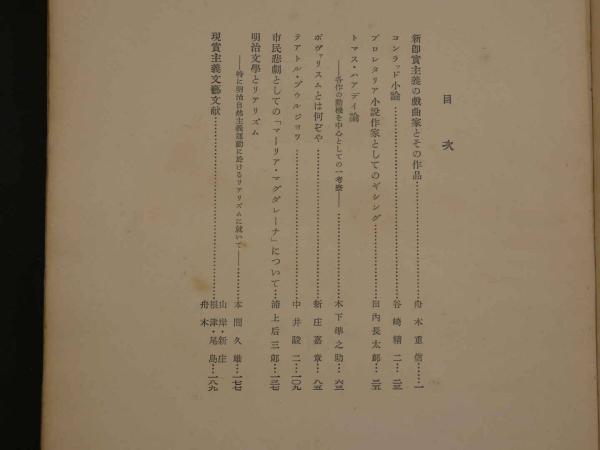 目次
新卽實主義の戲曲家とその作品……舟木重信……一
コンラッド小論……谷崎精二……二三
プロレタリア小說作家としてのギシング……田內長太郞……三五
トマス・ハアデイ論
――各作の動機を中心としての一考察――……木下準之助……六三
ボヴァリスムとは何ぞや……新庄嘉章……八五
テアトル・ブウルジョワ……中井駿二……一〇九
市民悲劇としての「マーリア・マグダレーナ」について……浦上后三郞……一三七
明治文學とリアリズム
――特に明治自然主義運動に於けるリアリズムに就いて――……本間久雄……一七七
現實主義文藝文献……山岸・新庄
根津・尾島……一八九
舟木